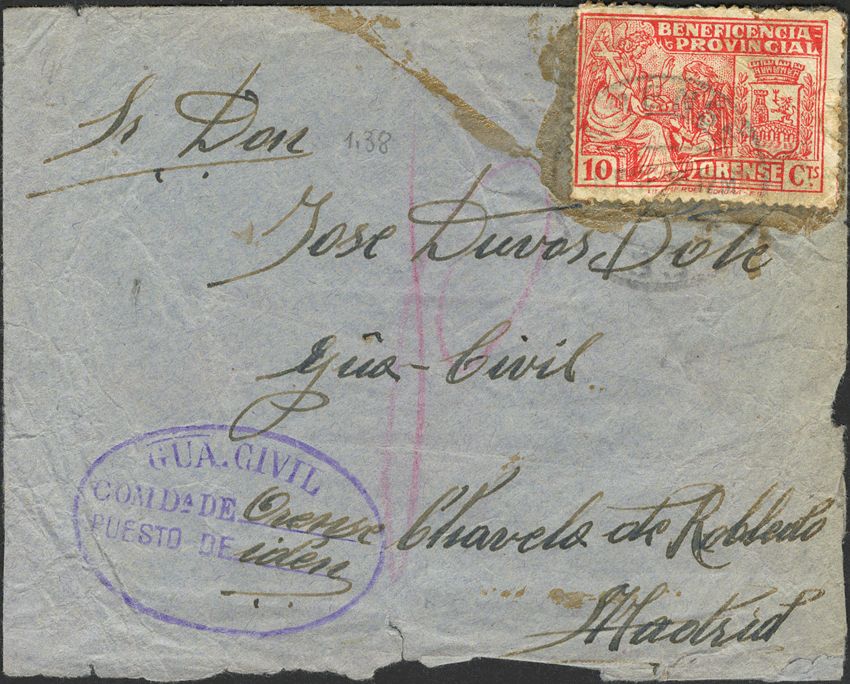 BENEFICENCIA
PROVINCIAL
10 ORENSE CTS
Sr Don
1,38
Jose Duvos Dole
Güa-Civil
GUA. CIVIL
COMDª DE Orense
PUESTO DE iden
Chavela de Robledo
Madrid